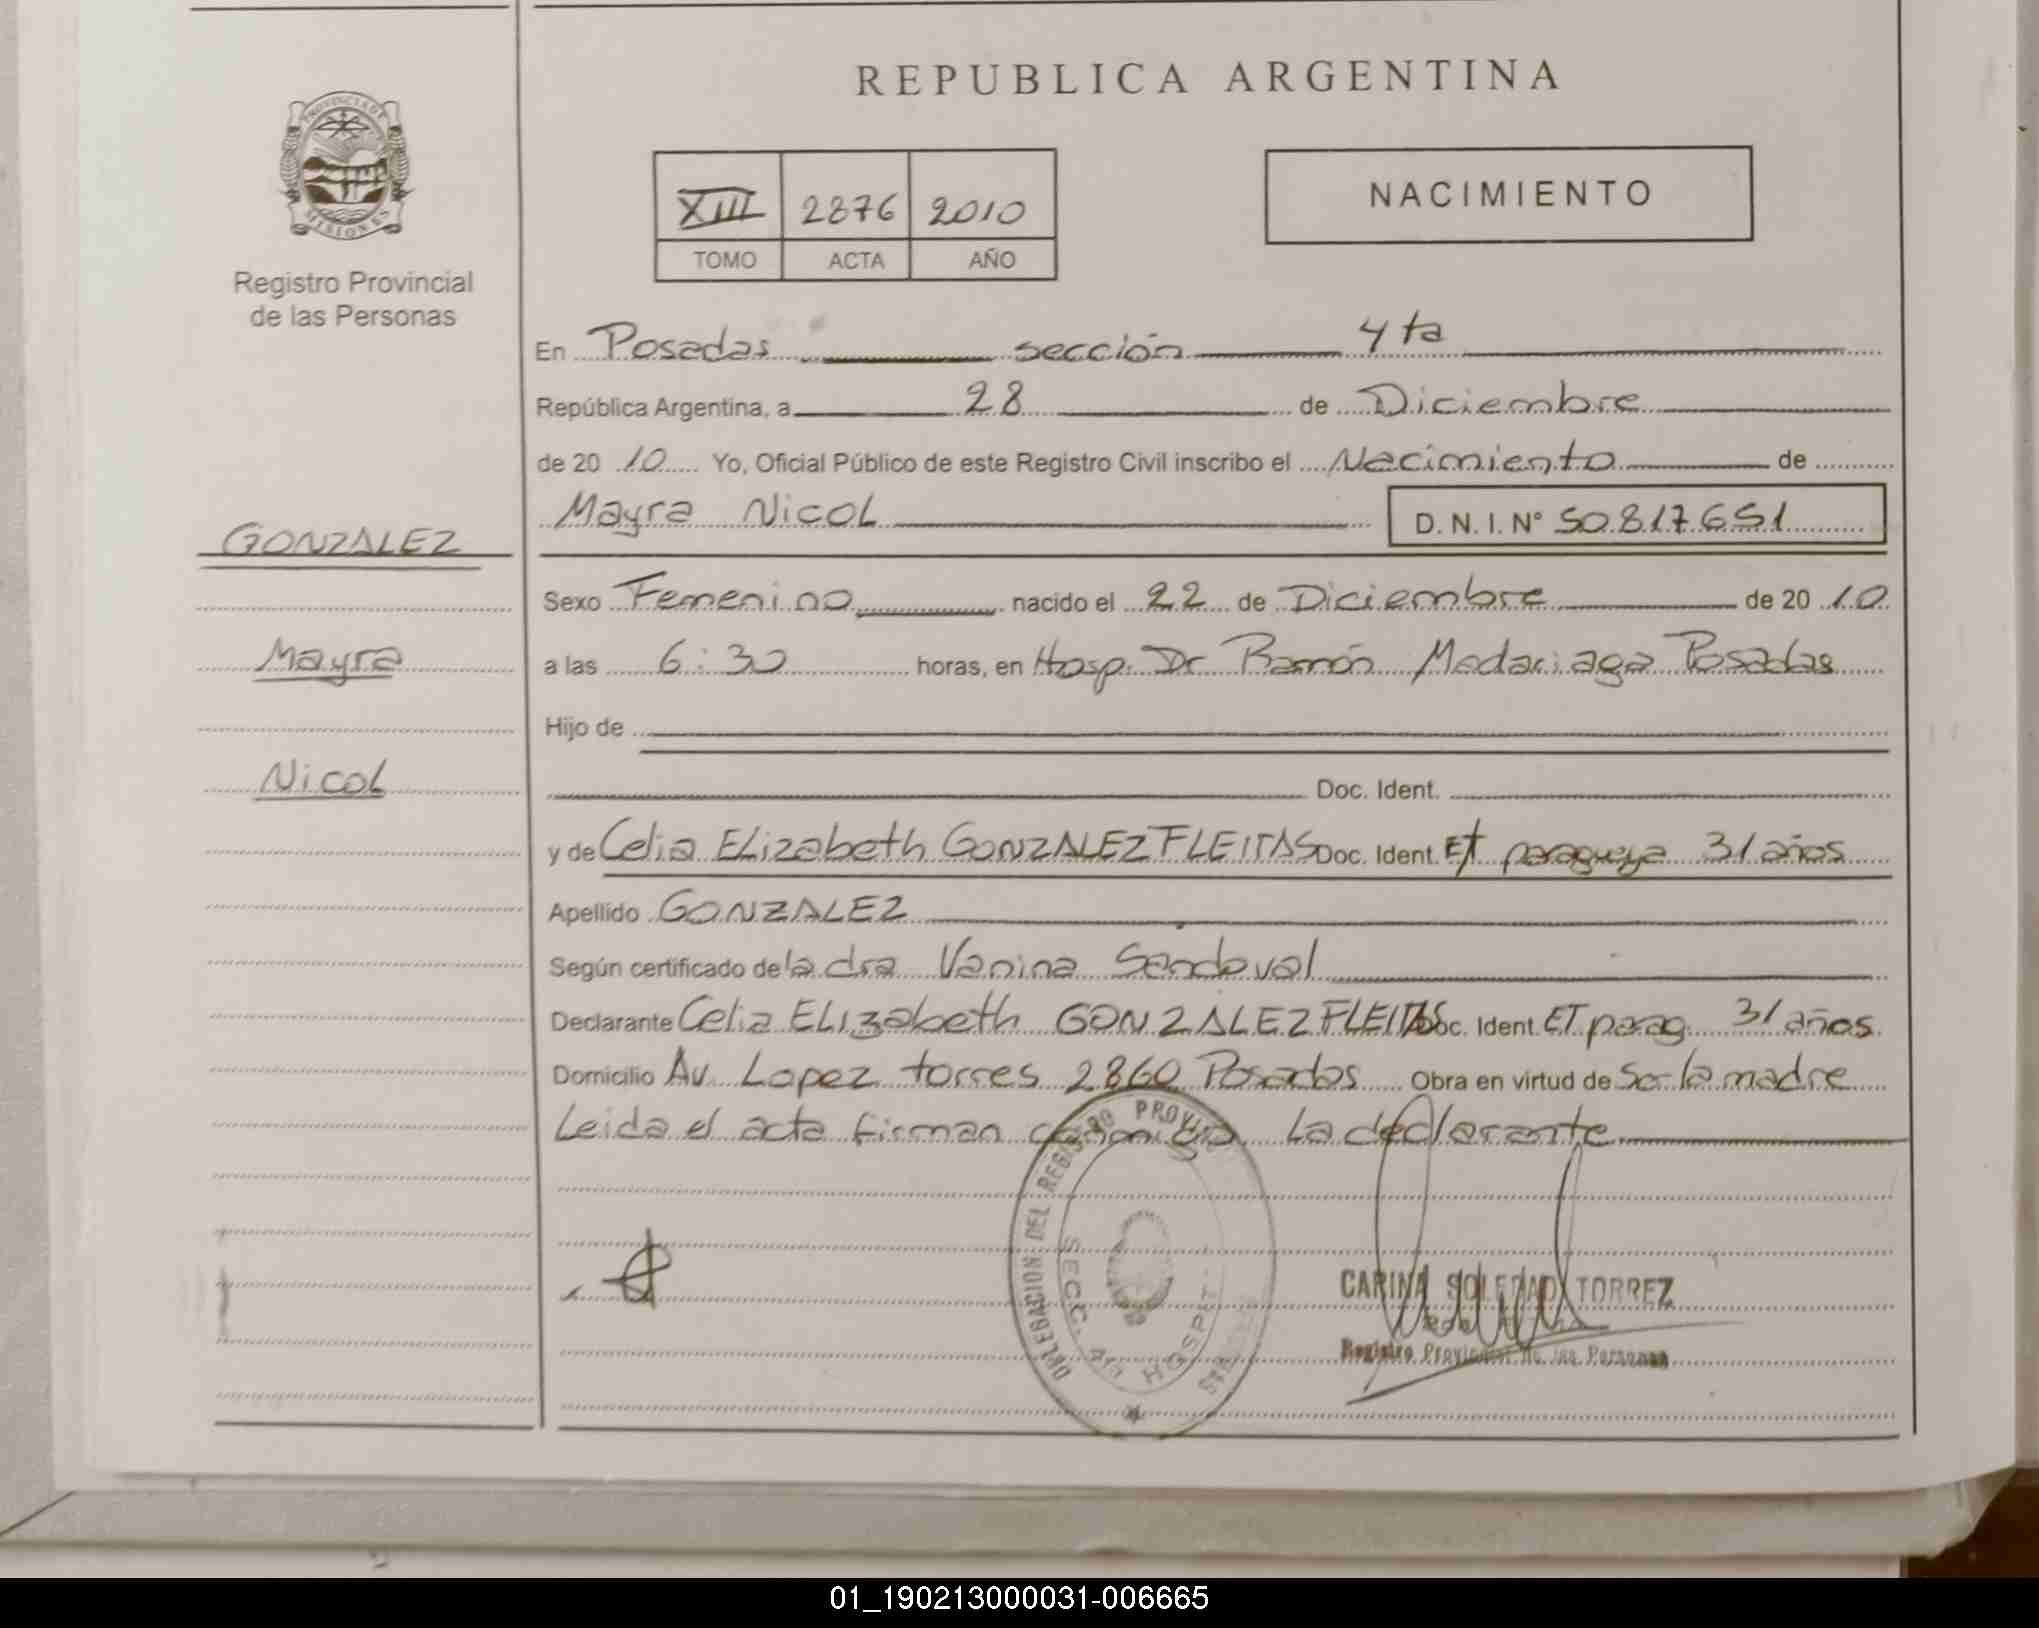 REPUBLICA ARGENTINA
PROVINCIA DE
MISIONES
Registro Provincial
de las Personas
XIII 2876 2010
TOMO ACTA AÑO
NACIMIENTO
En Posadas sección 4ta
República Argentina, a 28 de Diciembre
de 2010 Yo, Oficial Público de este Registro Civil inscribo el Nacimiento de
Mayra Nicol D. N. I. N° 50.817.651
GONZALEZ
Mayra
Nicol
Sexo Femenino nacido el 22 de Diciembre de 2010
a las 6:30 horas, en Hosp. Dr Ramón Madariaga Posadas
Hijo de
Doc. Ident.
y de Celia Elizabeth GONZALEZ FLEITAS Doc. Ident. Et paraguaya 31 años
Apellido GONZALEZ
Según certificado de la dra Vanina Sandoval
Declarante Celia Elizabeth GONZALEZ FLEITAS Doc. Ident. ET parag 31 años
Domicilio Av. Lopez torres 2860 Posadas Obra en virtud de Ser la madre
Leida el acta firman conmigo La declarante
DELEGACION DEL REGISTRO
SECC. 4ta HOSPIT
CARINA SOLEDAD TORREZ
Registro Provincial de las Personas
01_190213000031-006665